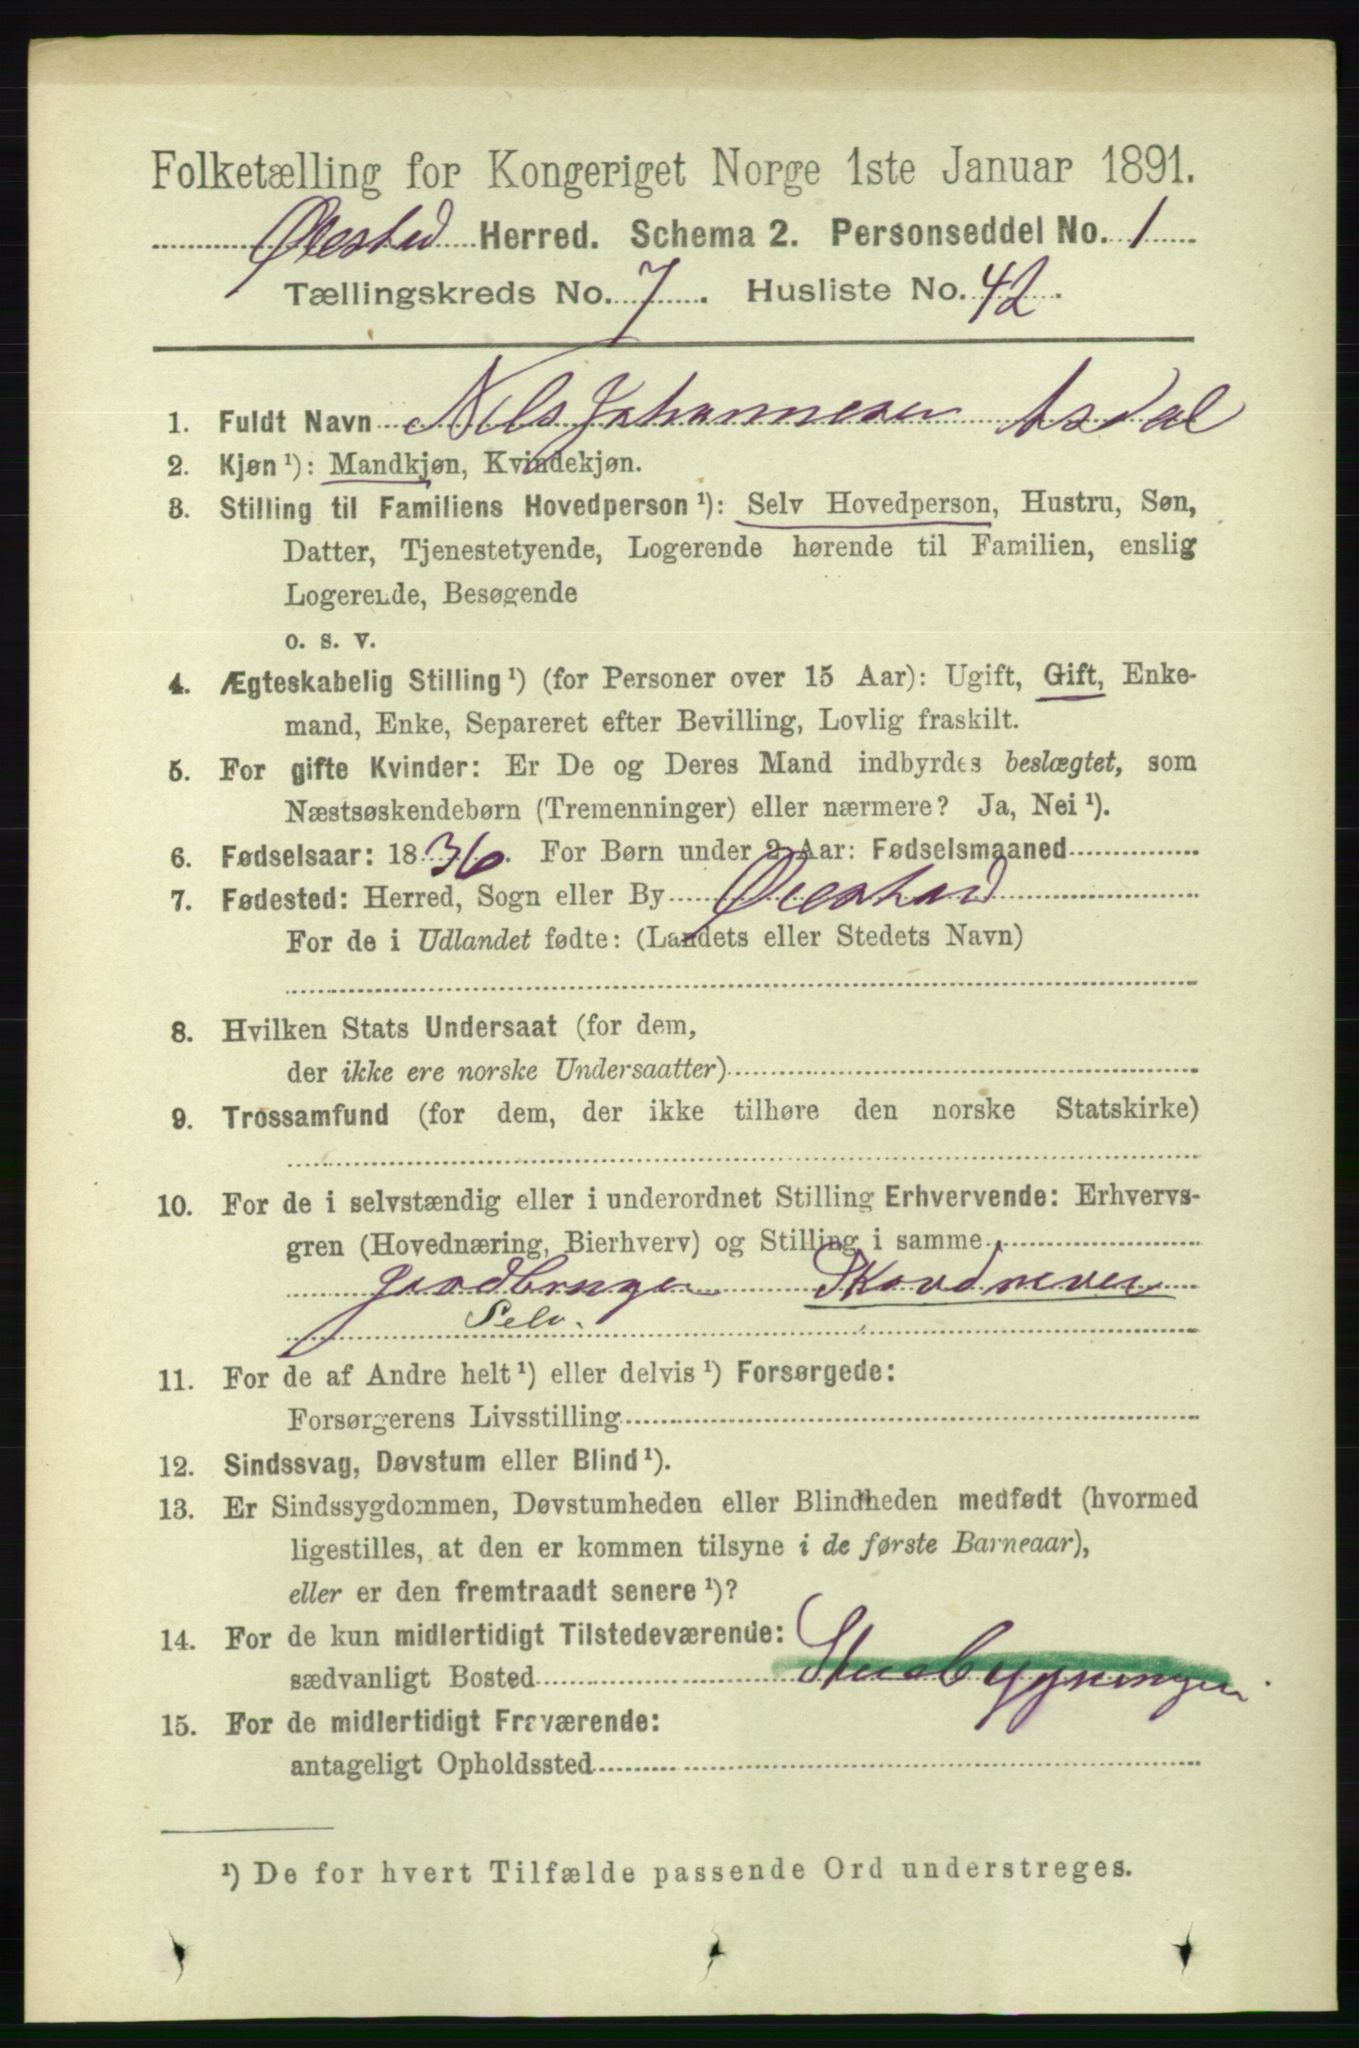 Folketælling for Kongeriget Norge 1ste Januar 1891.
Øiestad Herred. Schema 2. Personseddel No. 1
Tællingskreds No. 7. Husliste No. 42.
1. Fuldt Navn Nils Johannesen Asdal
2. Kjøn ¹): Mandkjøn, Kvindekjøn.
3. Stilling til Familiens Hovedperson ¹): Selv Hovedperson, Hustru, Søn,
Datter, Tjenestetyende, Logerende hørende til Familien, enslig
Logerende, Besøgende
o. s. v.
4. Ægteskabelig Stilling ¹) (for Personer over 15 Aar): Ugift, Gift, Enke-
mand, Enke, Separeret efter Bevilling, Lovlig fraskilt.
5. For gifte Kvinder: Er De og Deres Mand indbyrdes beslægtet, som
Næstsøskendebørn (Tremenninger) eller nærmere? Ja, Nei ¹).
6. Fødselsaar: 1836. For Børn under 2 Aar: Fødselsmaaned
7. Fødested: Herred, Sogn eller By Øiestad
For de i Udlandet fødte: (Landets eller Stedets Navn)
8. Hvilken Stats Undersaat (for dem,
der ikke ere norske Undersaatter)
9. Trossamfund (for dem, der ikke tilhøre den norske Statskirke)
10. For de i selvstændig eller i underordnet Stilling Erhvervende: Erhvervs-
gren (Hovednæring, Bierhverv) og Stilling i samme
Jordbruger
Selv.
11. For de af Andre helt ¹) eller delvis ¹) Forsørgede:
Forsørgerens Livsstilling
12. Sindssvag, Døvstum eller Blind ¹).
13. Er Sindssygdommen, Døvstumheden eller Blindheden medfødt (hvormed
ligestilles, at den er kommen tilsyne i de første Barneaar),
eller er den fremtraadt senere ¹)?
14. For de kun midlertidigt Tilstedeværende:
sædvanligt Bosted Stuebygningen.
15. For de midlertidigt Fraværende:
antageligt Opholdssted
¹) De for hvert Tilfælde passende Ord understreges.